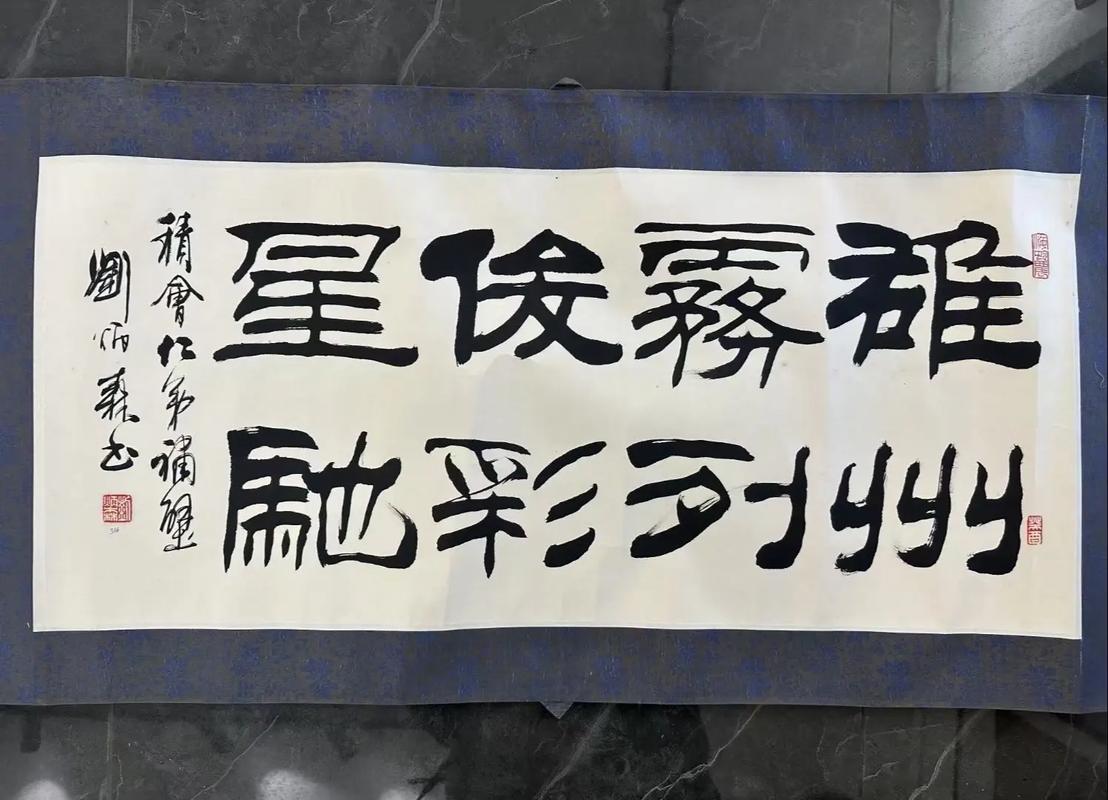 雄州
霧列
俊彩
星馳
積會仁弟補壁
劉炳森書